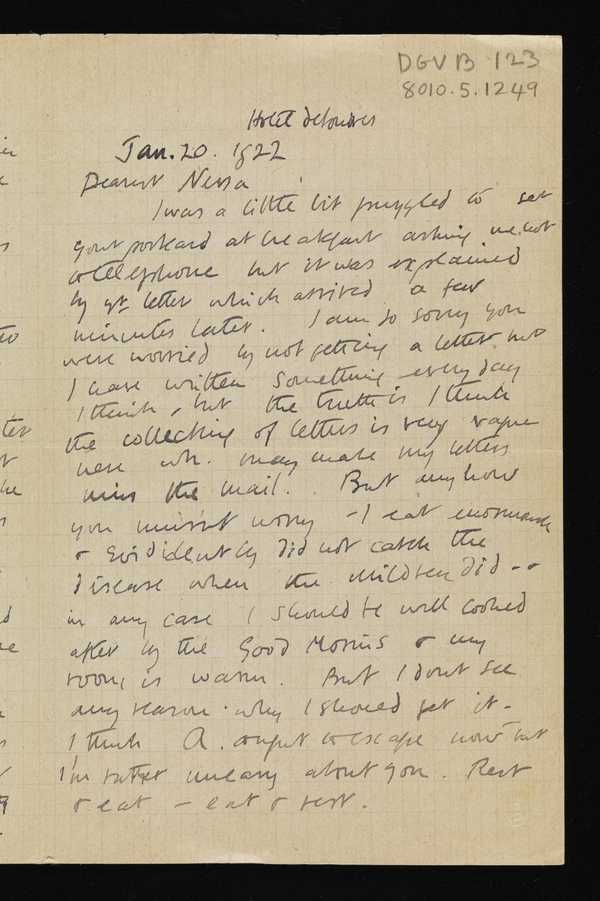 DGVB 123
8010.5.1249
Hotel de Londres
Jan. 20. 1922
Dearest Nessa
I was a little bit puzzled to get
your postcard at breakfast asking me not
to telephone but it was explained
by yr letter which arrived a few
minutes later. I am so sorry you
were worried by not getting a letter but
I have written something every day
I think, but the truth is I think
the collecting of letters is very vague
here wh. may make my letters
miss the mail. But anyhow
you mustnt worry – I eat enormously
& evididently did not catch the
disease when the children did – &
in any case I should be well looked
after by the Good Moms & my
room is warm. But I dont see
any reason why I should get it –
I think A. ought to escape now but
I'm rather uneasy about you. Rest
& eat – eat & rest.